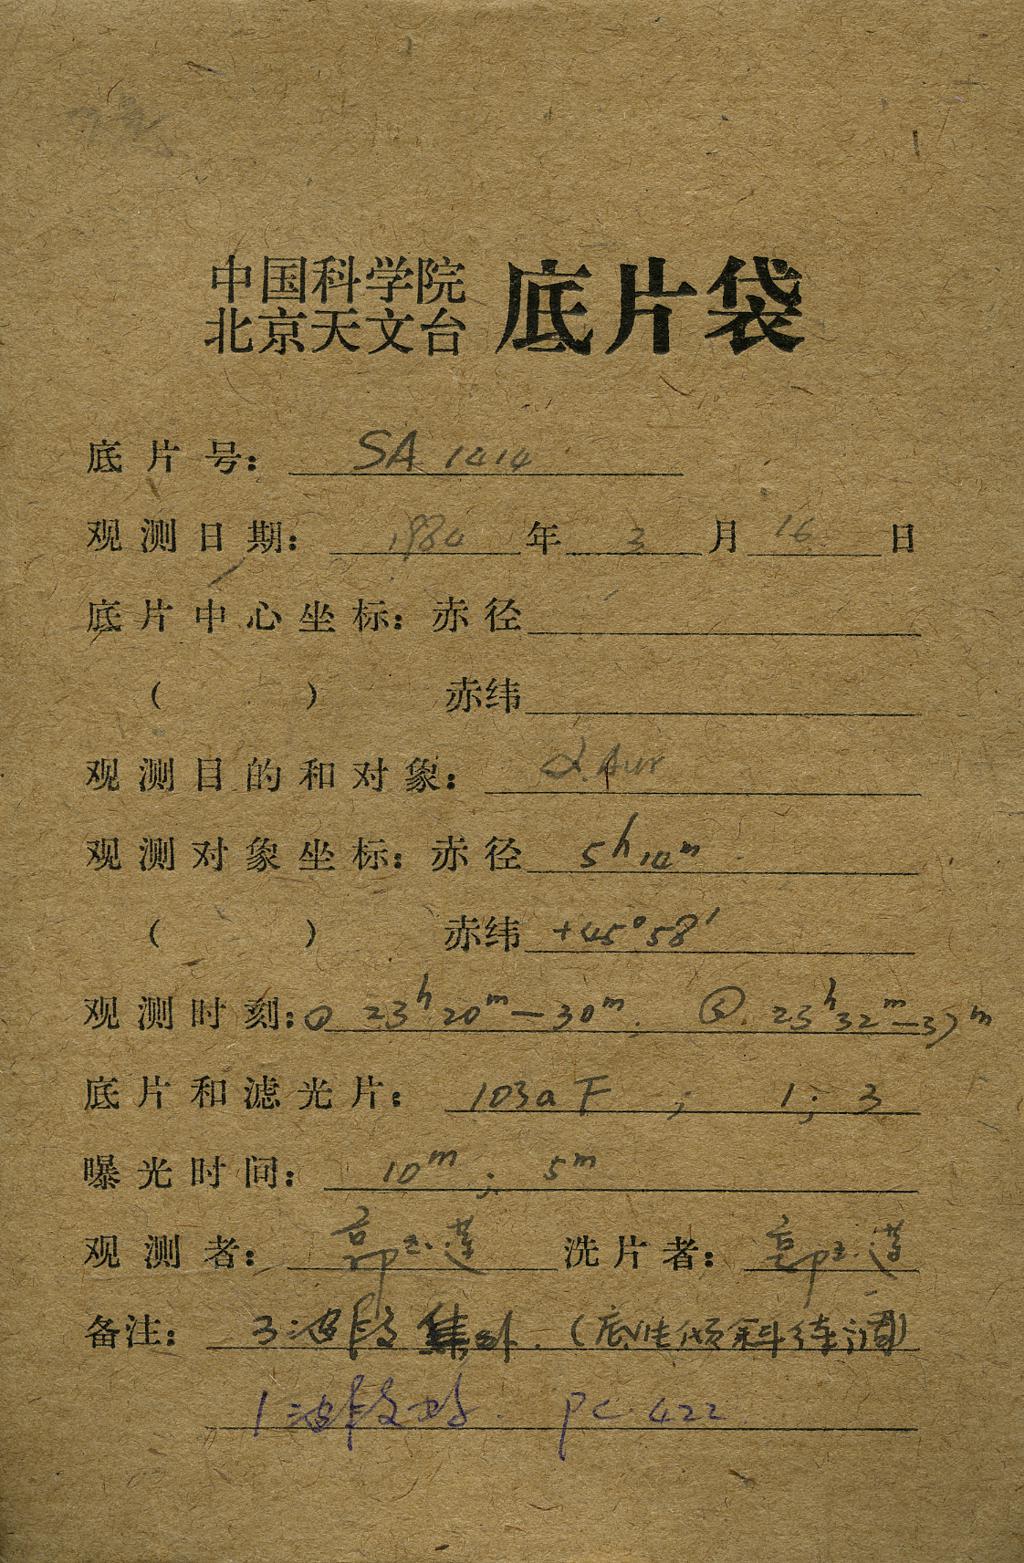 中国科学院
北京天文台 底片袋
底片号: SA 1414
观测日期: 1984 年 3 月 16 日
底片中心坐标: 赤径
( ) 赤纬
观测目的和对象: α Aur
观测对象坐标: 赤径 5h14m
( ) 赤纬 +45°58′
观测时刻: ① 23h20m—30m. ③ 23h32m—37m
底片和滤光片: 103aF ; 1; 3
曝光时间: 10m ; 5m
观测者: 郭玉莲 洗片者: 郭玉莲
备注: 3波段 (底片倾斜
1波段 pc 422